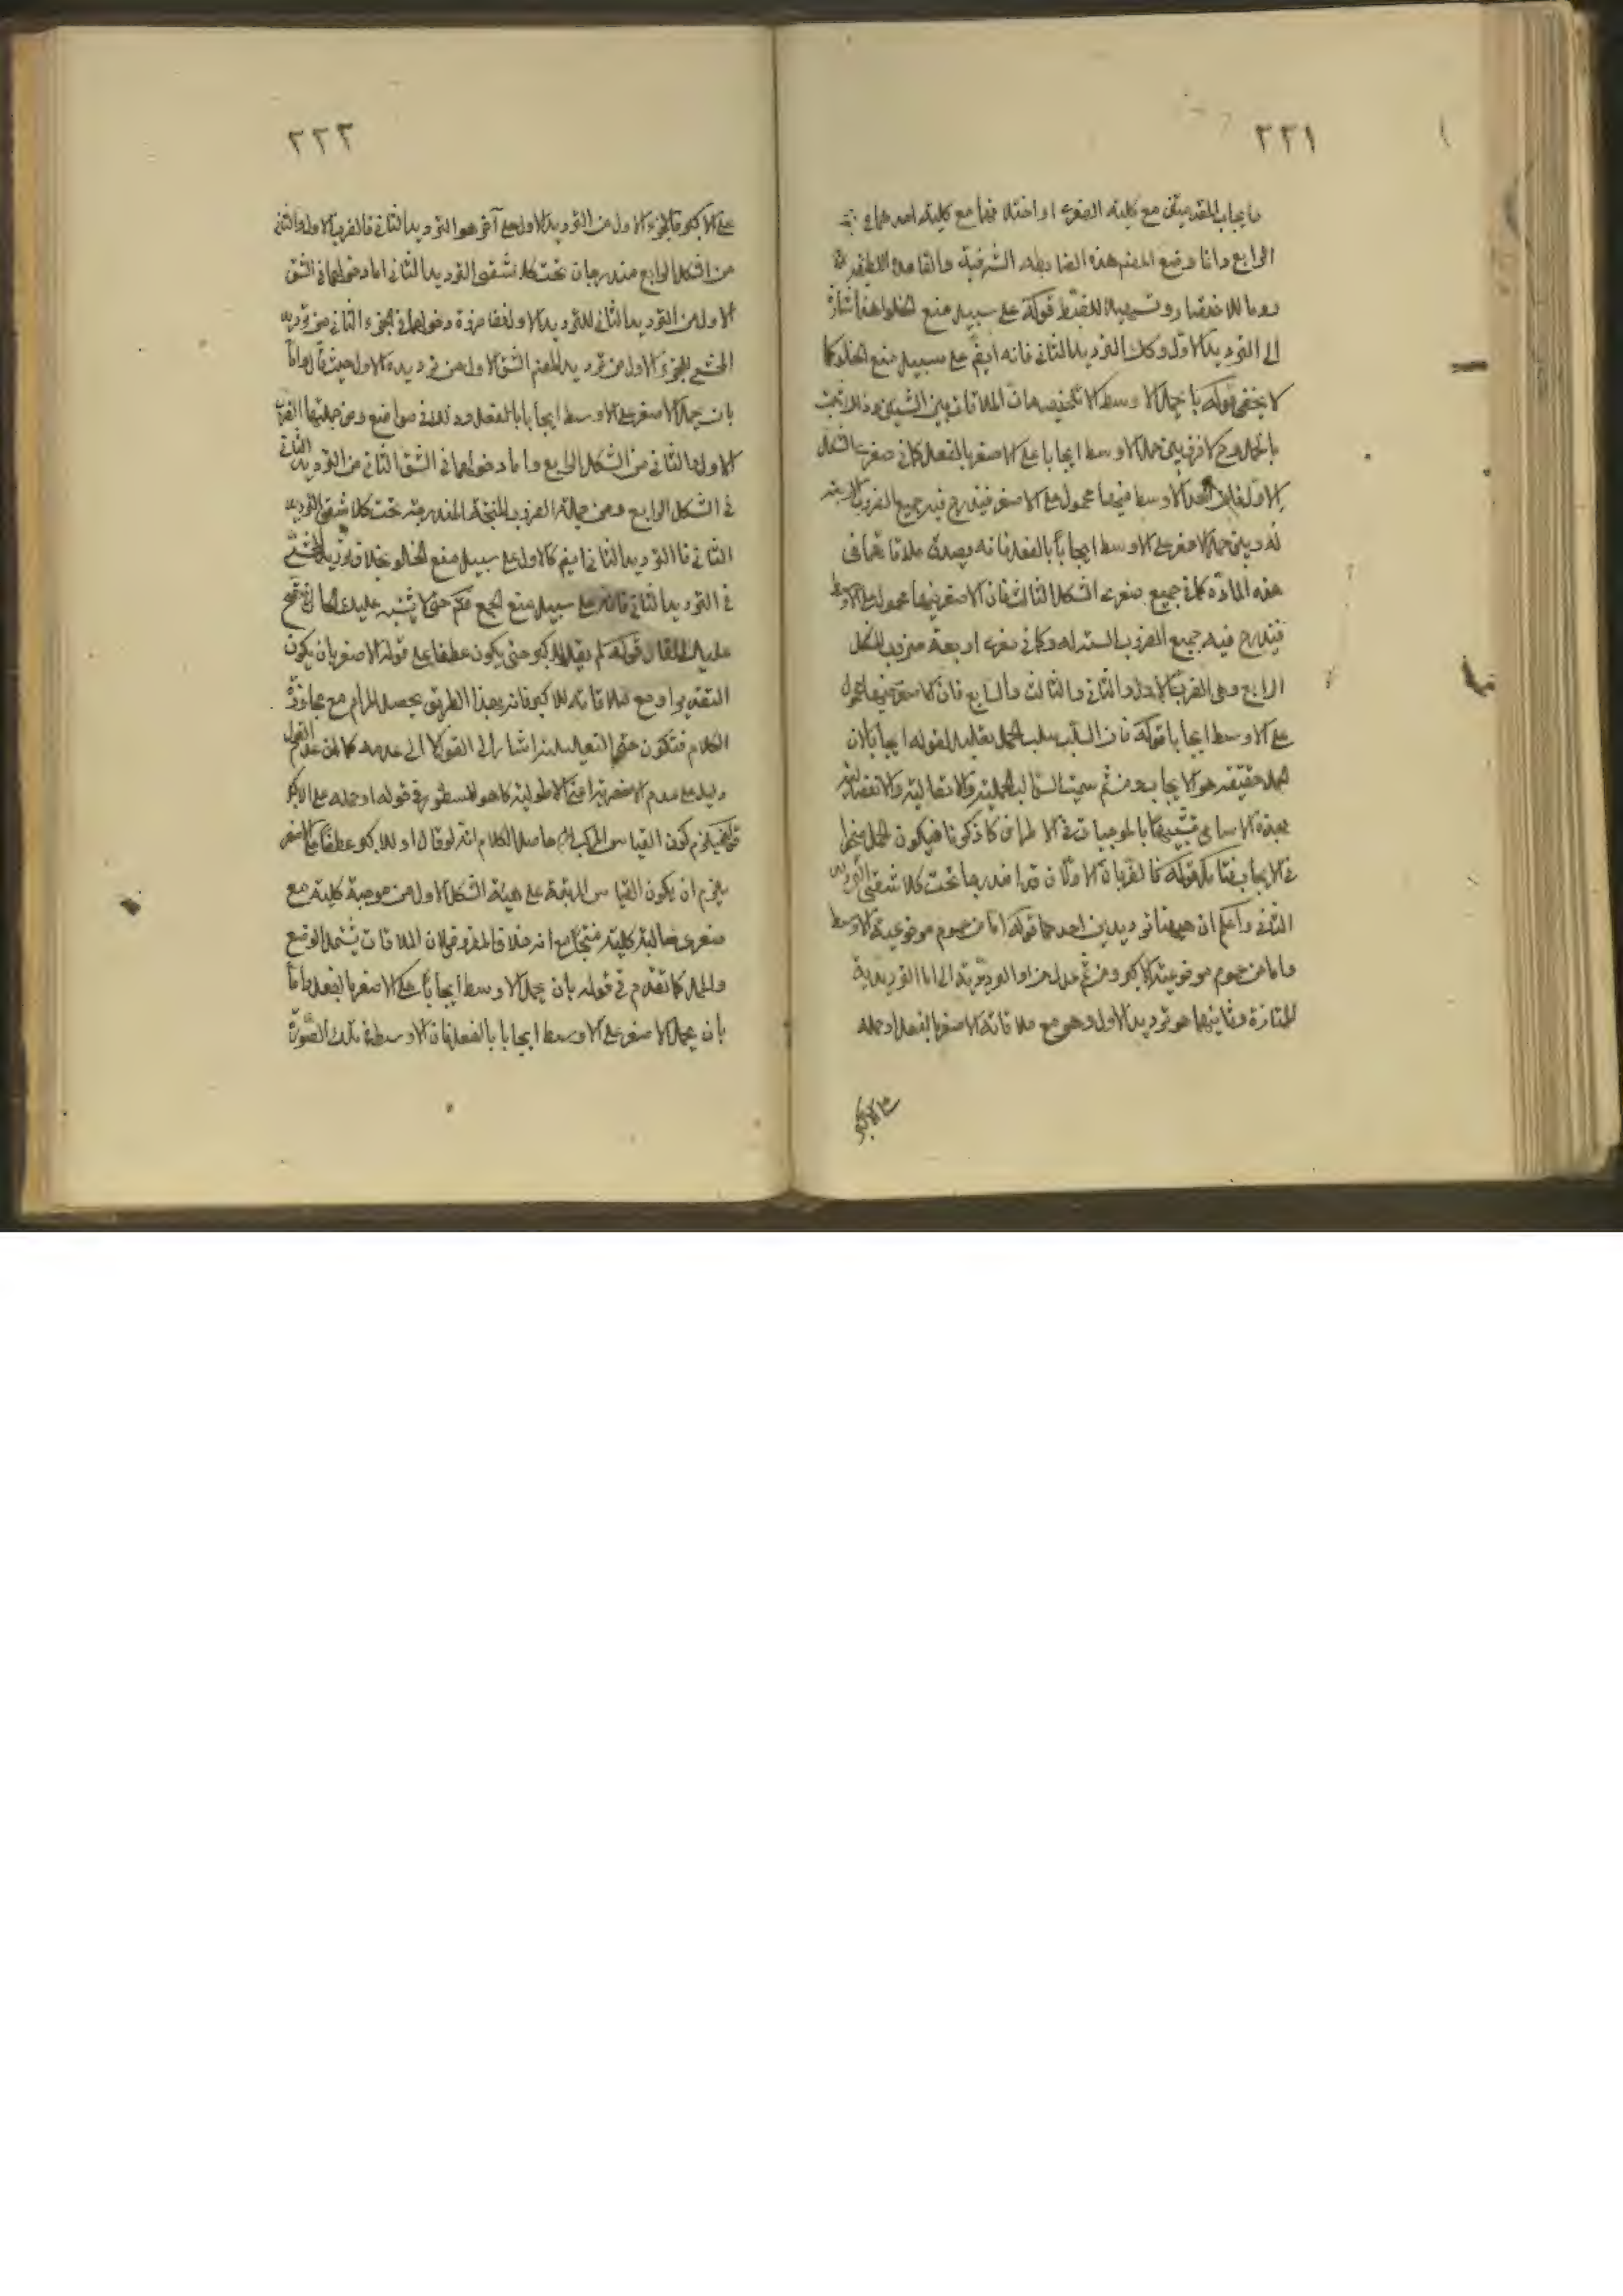 ٢٢١
بايجاب المقدمتين مع كلية الصغرى او اختلافهما مع كلية احدهما في
الرابع وانما وضع المصنف هذه الضابطة الشريفة والقاعدة اللطيفة
روما للاختصار وتسهيلا للضبط قوله على سبيل منع الخلو هذا اشارة
الى الترديد الاول وكذا الترديد الثاني فانه ايضا على سبيل منع الخلو كما
لا يخفى قوله بان يحمل الاوسط الملاقات بين الشيئين
بالحمل وح لا فرق بين حمل الاوسط ايجابا على الاصغر بالفعل كما في صغرى الشكل
الاول فان الاوسط فيهما محمول على الاصغر فيندرج فيه جميع الضروب الاربعة
له وبين حمل الاصغر على الاوسط ايجابا بالفعل فانه يصدق ملاقاتهما في
هذه المادة كما في جميع صغرى الشكل الثالث فان الاصغر فيها محمول على الاوسط
فيندرج فيه جميع الضروب الستة له وكما في صغرى اربعة ضروب الشكل
الرابع وهي الضرب الاول والثاني والثالث والسابع فان الاصغر فيها محمول
على الاوسط ايجابا قوله فان السلب سلب الحمل تعليل لقوله ايجابا لان
الحمل حقيقة هو الايجاب ومن ثم سميت السوالب الحملية والاتصالية والانفصالية
بهذه الاسامي تشبيها بالموجبات في الاطراف كما ذكرنا فيكون الحمل منحصرا
في الايجاب فتامل قوله فالضربان الاولان قد اندرجا تحت كلا شقي الترديد
الثاني واعلم ان ههنا ترديدين احدهما قوله اما من عموم موضوعية الاوسط
واما من عموم موضوعية الاكبر ومن ثم عدل من او الترديدية الى اما الترديدية
الممتازة وثانيهما هو ترديد الاول وهو مع ملاقاته الاصغر بالفعل او حمله
على الاكبر
٢٢٢
على الاكبر فالجزء الاول من الترديد الاول على آخر هو الترديد الثاني فالضرب الاول والثاني
من الشكل الرابع مندرجان تحت كلا شقي الترديد الثاني اما دخولهما في الشق
الاول من الترديد الثاني للترديد الاول دخولهما في الجزء الثاني من ترديد
المحشي للجزء الاول من ترديد المصنف الشق الاول من ترديده الاول حيث قال واما
بان يحمل الاصغر على الاوسط ايجابا بالفعل وذلك في مواضع ومن جملتها الضرب
الاول والثاني من الشكل الرابع واما دخولهما في الشق الثاني من الترديد الثاني
في الشكل الرابع ومن جملة الضروب المنتجة المندرجة تحت كلا شقي الترديد
الثاني فالترديد الثاني ايضا كالاول على سبيل منع الخلو بخلاف ترديد المحشي
في الترديد الثاني فانه على سبيل منع الجمع حتى لا يشتبه عليك الحال
عليك المقال قوله لم يقل للاكبر حتى يكون عطفا على قوله الاصغر بان يكون
التقدير او مع ملاقاته للاكبر فانه بهذا الطريق يحصل المرام مع
الكلام فتكون حتى التعليلية اشارة الى القول لا الى عدمه
دليل على عدم الاخصرية اعني الاطولية كما هو المسطور في قوله او حمله على الاكبر
قوله فيلزم كون القياس المركب حاصل الكلام انه لو قال او للاكبر عطفا على الاصغر
يلزم ان يكون القياس المرتبة على هيئة الشكل الاول من موجبة كلية مع
صغرى سالبة كلية منتجا مع انه خلاف المفروض لان الملاقات يشمل الوضع
والحمل كما تقدم في قوله بان يحمل الاوسط ايجابا على الاصغر بالفعل واما
بان يحمل الاصغر على الاوسط ايجابا بالفعل فان الاوسط في تلك الصورة